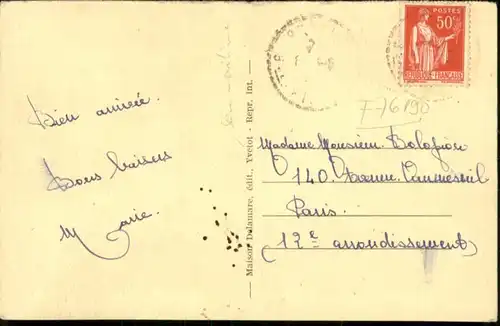 Bien arrivée.
Bons baisers
Marie.
Maison Delamare, édit., Yvetot - Repr. Int.
POSTES
50c
REPUBLIQUE FRANÇAISE
F-76190
Madame Monsieur
140 Avenue Daumesnil
Paris.
(12e arrondissement)